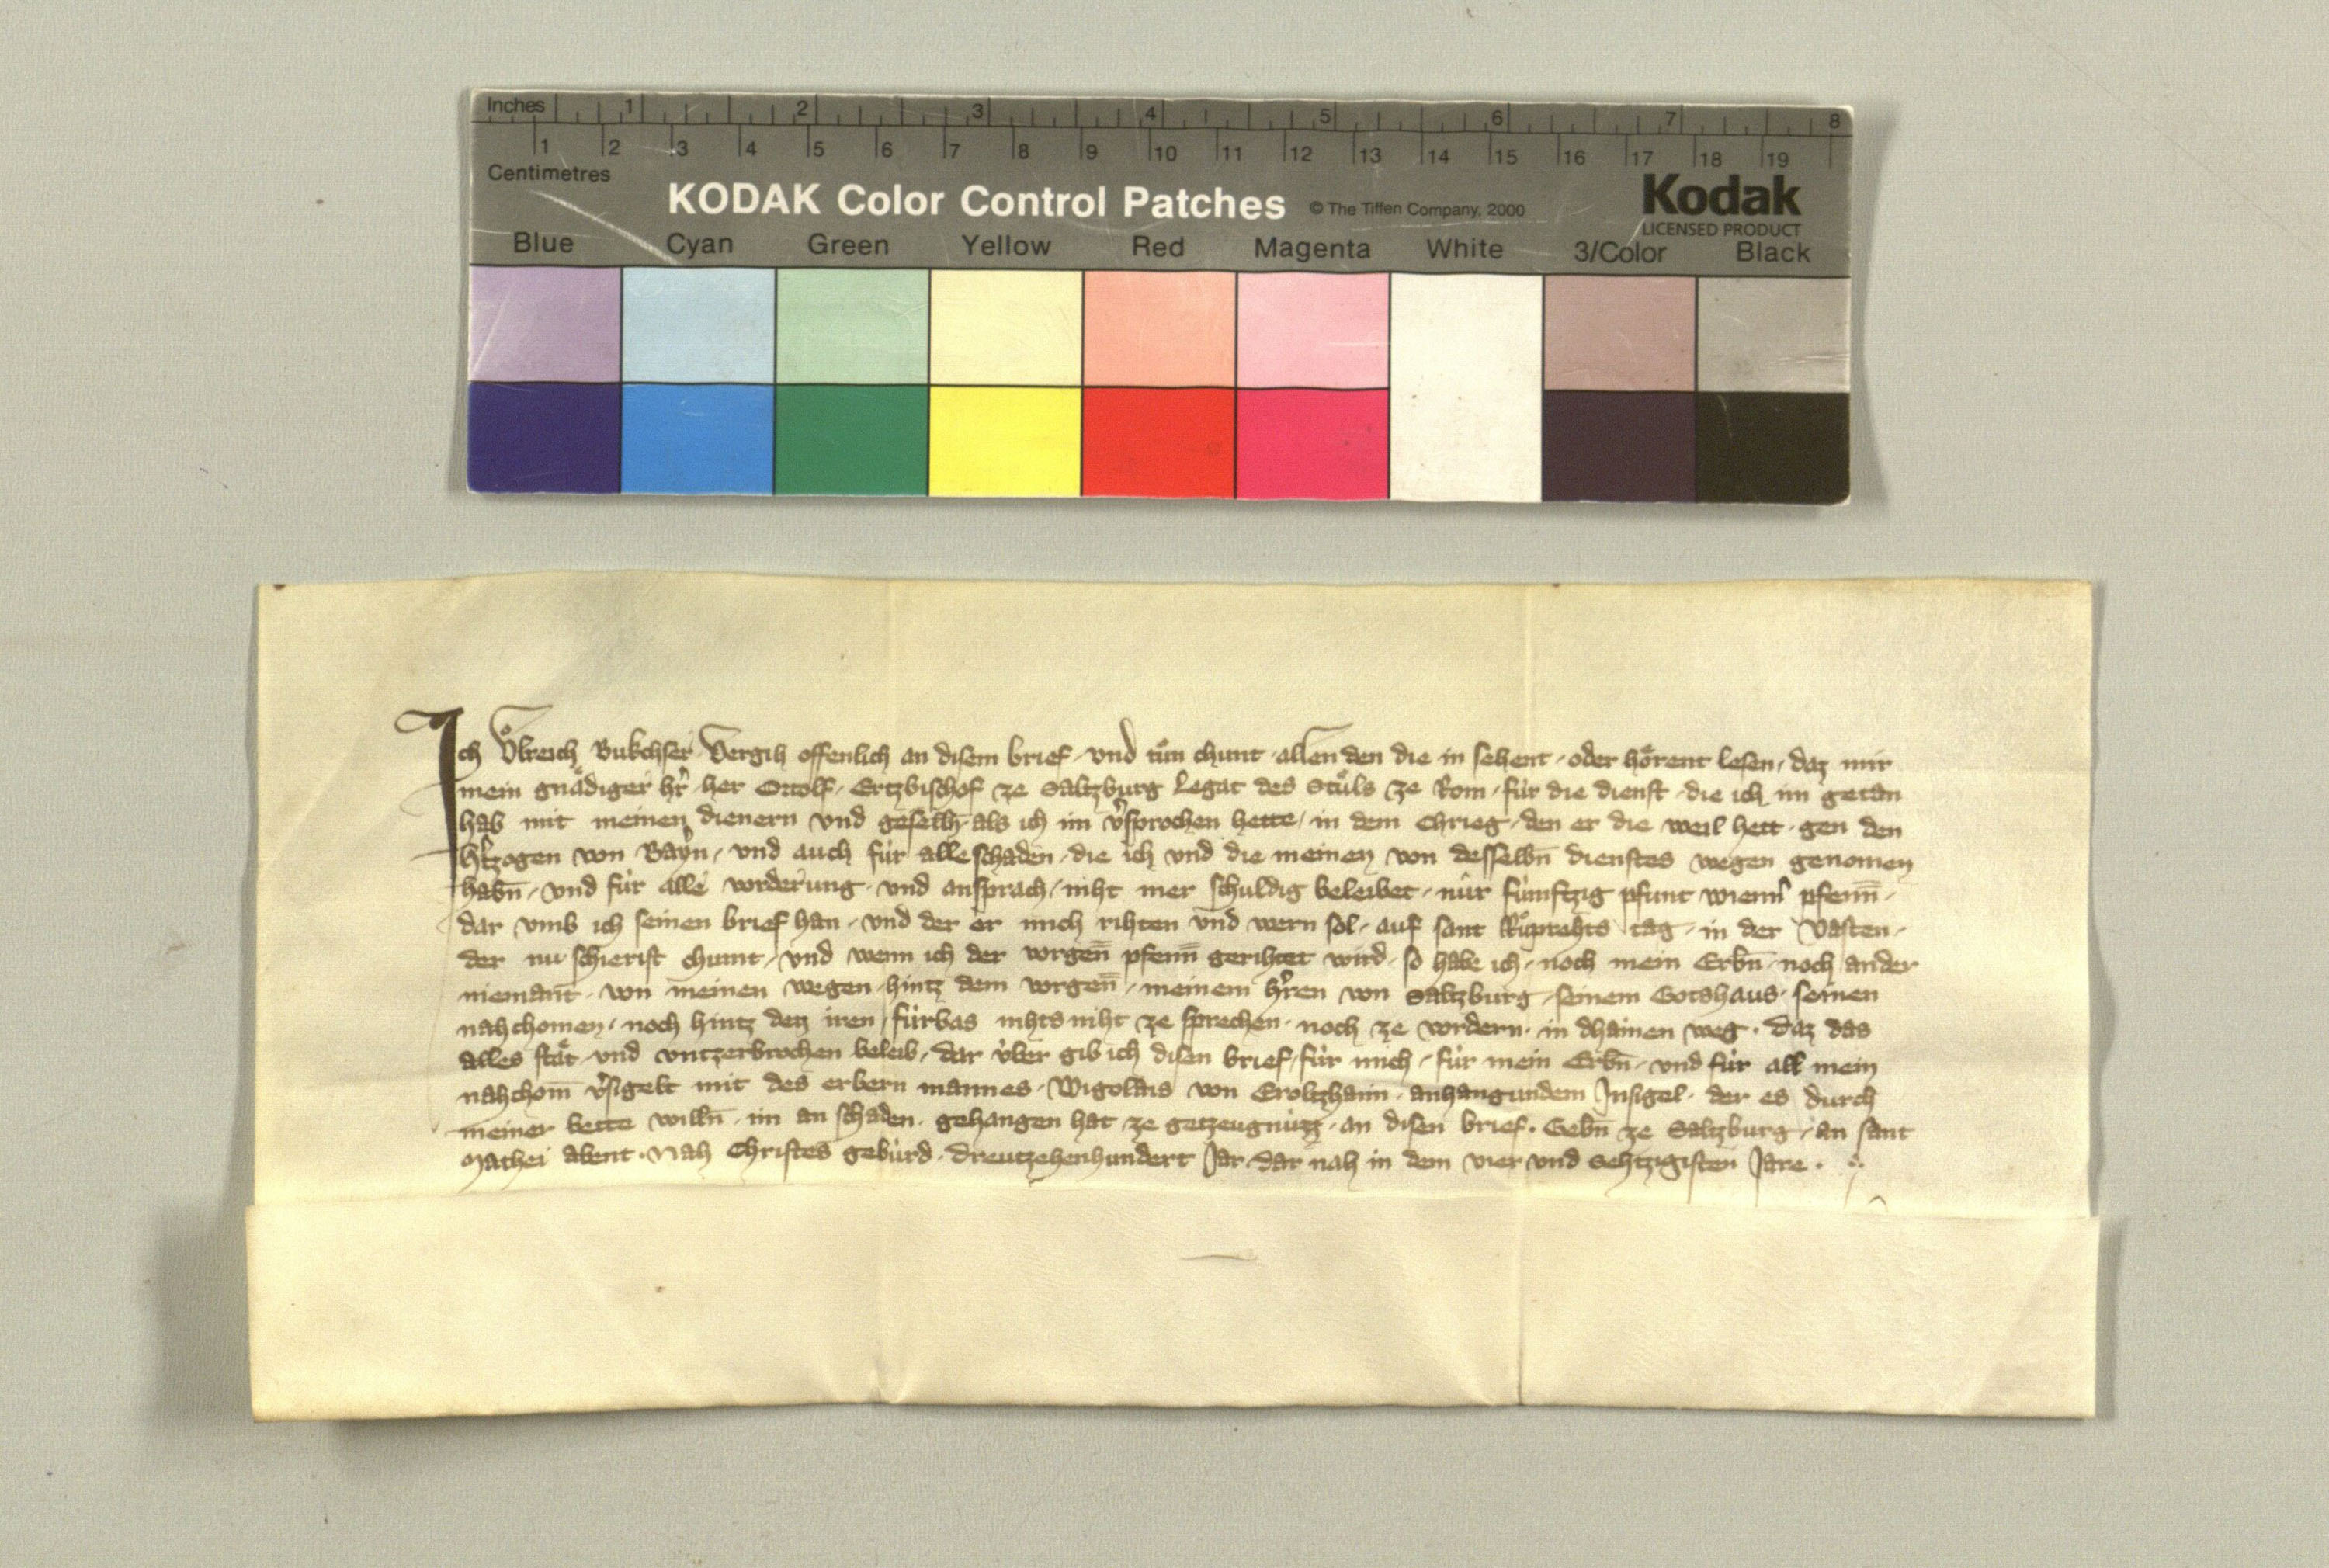 Inches 1 2 3 4 5 6 7 8
1 2 3 4 5 6 7 8 9 10 11 12 13 14 15 16 17 18 19
Centimetres
KODAK Color Control Patches © The Tiffen Company, 2000 Kodak
LICENSED PRODUCT
Blue Cyan Green Yellow Red Magenta White 3/Color Black
Ich Ůlreich Bukchser Vergih offenlich an disem brief und tůn chunt allen den die in sehent oder hôrent lesen, daz mir
mein gnådiger hr̄ her Ortolf Ertzbischof ze Saltzburg Legat des Stůls ze Rom für die dienst die ich im getan
hab mit meinen dienern und geselln̄ als ich im v̉sprochen hette in dem Chrieg den er die weil hett gen den
h̉tzogen von Bayrn und auch für alle schaden die ich und die meinen von desselbn̄ dienstes wegen genomen
habn̄ und für alle vorderung und ansprach niht mer schuldig beleibet nür fümftzig pfunt wienn̉ pfenn̄
dar umb ich seinen brief han und der er mich rihten und wern sol auf sant Růprehts tag in der Vasten
der nu schierist chumt und wenn ich der vorgen̄ pfenn̄ gerihtet wird so habe ich noch mein Erbn̄ noch ander
niemant von meinen wegen hintz dem vorgen̄ meinem h̉ren von Saltzburg seinem Gotshaus seinen
nahchomen noch hintz den iren fürbas nihts niht ze sprechen noch ze vordern in dhainen weg. Daz das
alles ståt und untzerbrochen beleib dar über gib ich disen brief für mich für mein Erbn̄ und für all mein
nahchom̄ v̉sigelt mit des erbern mannes Wigolais von Eroltzhaim anhangundem Insigel der es durch
meiner bette willn̄ im an schaden gehangen hat ze getzeugnüzz an disen brief. Gebn̄ ze Saltzburg an sant
Mathei abent Nah Christes gebürd Dreutzehenhundert Jar dar nah in dem vier und Sehtzigisten Jare.